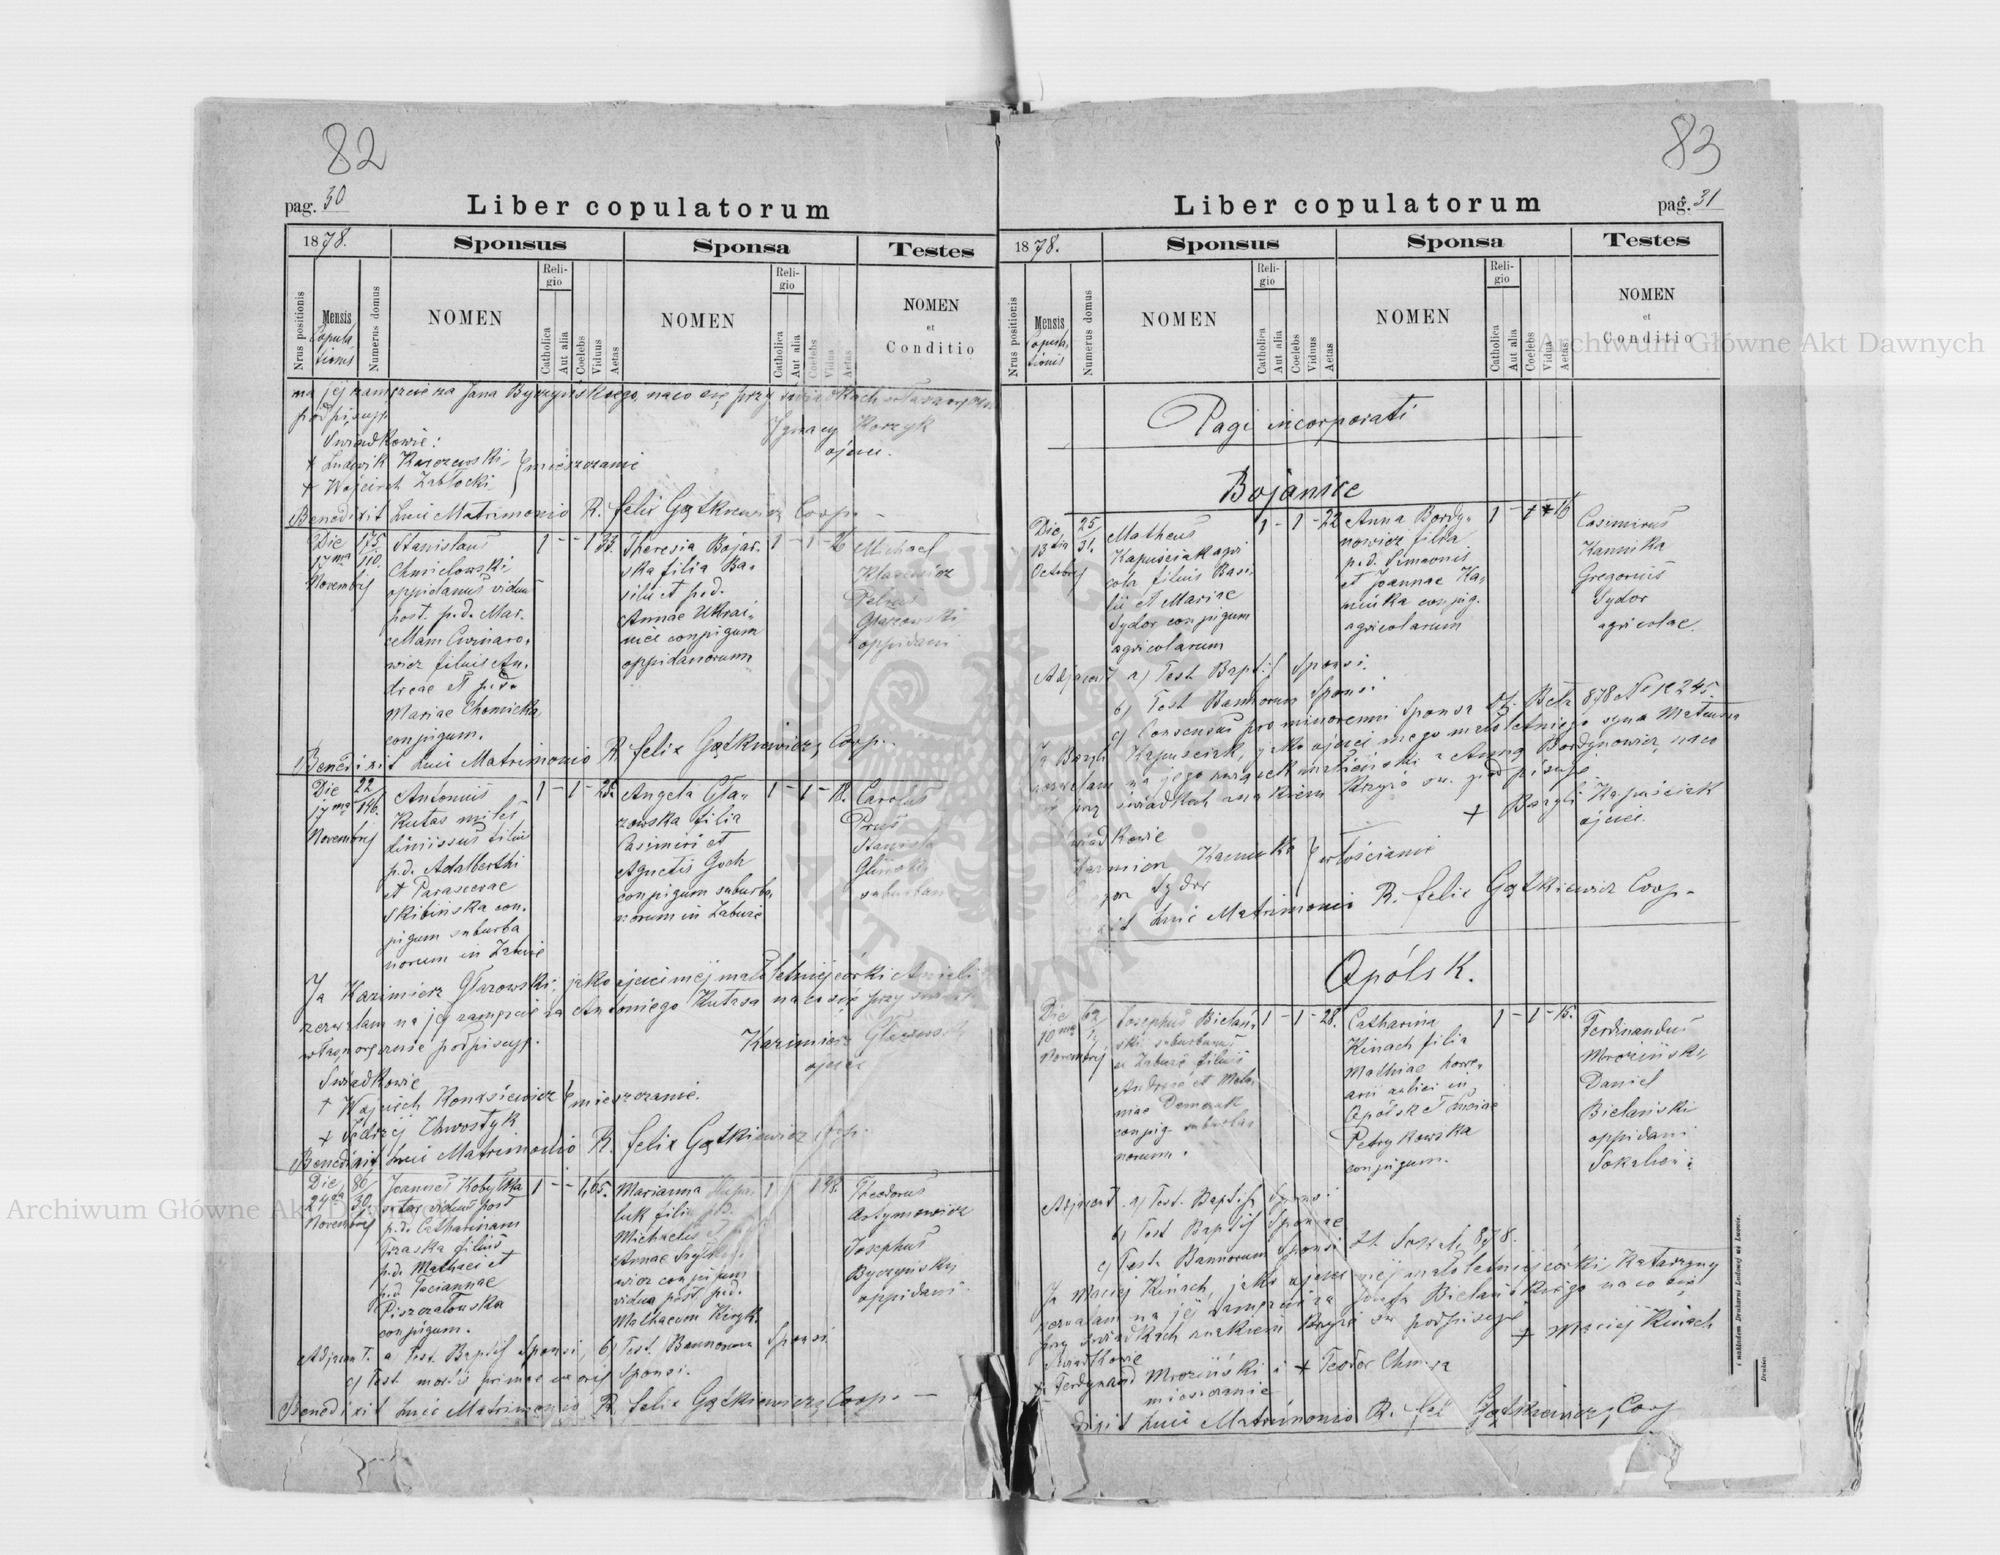 82
pag. 30
Liber copulatorum
1878.
Sponsus
Sponsa
Testes
Nrus positionis
Mensis
Copula-
tionis
Numerus domus
NOMEN
Reli-
gio
Catholica
Aut alia
Coelebs
Viduus
Aetas
NOMEN
Reli-
gio
Catholica
Aut alia
Coelebs
Vidua
Aetas
NOMEN
et
Conditio
ma jej zamęzcie za Jana Byczyńskiego, naco się przy świadkach
podpisuję
Ignacy Korzyk
ojciec.
Swiadkowie:
+ Ludwik Karczewski
+ Wojciech Zabłocki
mieszczanie
Benedixit huic Matrimonio R. Felix Gątkiewicz Coop. -
Die 175/110.
17ma
Novembrij
Stanislaus
Chmielowski
oppidanus viduus
post. p.d. Mar-
cellam
filius An-
dreae et p.d.
Mariae Chomicka
conjugum.
1 - - 1 33.
Theresia Bojar-
ska filia Ba-
silii et p.d.
Annae Ukrai-
nici conjugum
oppidanorum
1 - 1 - 26
Michael
Klasewicz
Petrus
Głazowski
oppidani
Benedixit huic Matrimonio R. Felix Gątkiewicz, Coop. -
Die 22/196.
17ma
Novembrij
Antonius
Kutas miles
dimissus filius
p.d. Adalberthi
et Parascevae
Skibinska con-
jugum suburba
norum in Zabuże
1 - 1 - 28.
Angela Gła-
zowska filia
Casimiri et
Agnetis Goch
conjugum suburba-
norum in Zabuże
1 - 1 - 18.
Carolus
Prus
Stanisl.
Gliński
suburbani
Ja Kazimierz Głazowski, jako ojciec mej małoletniej córki Anieli
zezwalam na jej zamęzcie za Antoniego Kutasa naco się przy
własnoręcznie podpisuję.
Kazimierz Głazowski
ojciec
Swiadkowie
+ Wojciech Konasiewicz
+ Jędrzej Chwostyk
mieszczanie.
Benedixit huic Matrimonio R. Felix Gątkiewicz Coop.
Die 86/30.
24ta
Novembrij
Joannes Kobyłka
viduus post
p.d. Catharinam
Traska filius
p.d. Mathaei et
p.d. Tacianae
Piszczatowska
conjugum.
1 - - 1 65.
Marianna
luk filia p.d.
Michaelis et
Annae
wicz conjugum
vidua post p.d.
Mathaeum Kiryk.
1
Theodorus
Artymowicz
Josephus
Byczyński
oppidani.
Adjacent. a Test. Baptis Sponsi, b) Test. Bannorum Sponsi
c) Test mortis primae uxoris Sponsi.
Benedixit huic Matrimonio R. Felix Gątkiewicz, Coop. -
83
pag. 31
Liber copulatorum
1878.
Sponsus
Sponsa
Testes
Nrus positionis
Mensis
Copula-
tionis
Numerus domus
NOMEN
Reli-
gio
Catholica
Aut alia
Coelebs
Viduus
Aetas
NOMEN
Reli-
gio
Catholica
Aut alia
Coelebs
Vidua
Aetas
NOMEN
et
Conditio
Pagi incorporati
Bojanice
Die 25/31.
13tia
Octobrij
Matheus
Kapuściak agri
cola filius Basi-
lii et Mariae
Sydor conjugum
agricolarum
1 - 1 - 22
Anna Bordy-
nowicz filia
p.d. Simeonis
et Joannae Ka-
mińka conjug.
agricolarum
1 - 16
Casimirus
Kamińka
Gregorius
Sydor
agricolae.
Adjacent a) Test Baptis Sponsi.
b) Test Bannorum Sponsi
c) Consensus pro minorenni Sponsa
Ja Bazyli Kapuściak, jako ojciec mego małoletniego syna Mateusza
zezwalam na jego związek małżeński z Anną Bordynowicz, naco
przy świadkach znakiem Krzyża św. podpisuję
+ Bazyli Kapuściak
ojciec.
Kamińka
Sydor
włościanie
huic Matrimonio R. Felix Gątkiewicz Coop. -
Opólsk.
Die 69
10ma
Novembrij
Josephus Bielań-
ski suburbanus
in Zabuże filius
Andreae et Mela-
niae Demczak
conjug. suburba-
norum.
1 - 1 - 28.
Catharina
Kinach filia
Mathiae
Opólsk et
Petrykowska
conjugum.
1 - 1 - 15.
Ferdinandus
Mroziński,
Daniel
Bielański
oppidani
Sokalien.
Adjacent a) Test. Baptis Sponsi
b) Test Baptis Sponsae
c) Test. Bannorum Sponsi dt. Sokal, 878.
Ja Maciej Kinach, jako ojciec mej małoletniej córki, Katarzyny
zezwalam na jej zamęzcie za Józefa Bielańskiego naco się
przy świadkach znakiem Krzyża św. podpisuję
+ Maciej Kinach
Swiadkowie
+ Ferdynand Mroziński i + Teodor
mieszczanie
huic Matrimonio R. Gątkiewicz, Coop
z nakładem Drukarni Ludowej we Lwowie.
Archiwum Główne Akt Dawnych
Archiwum Główne Akt Dawnych